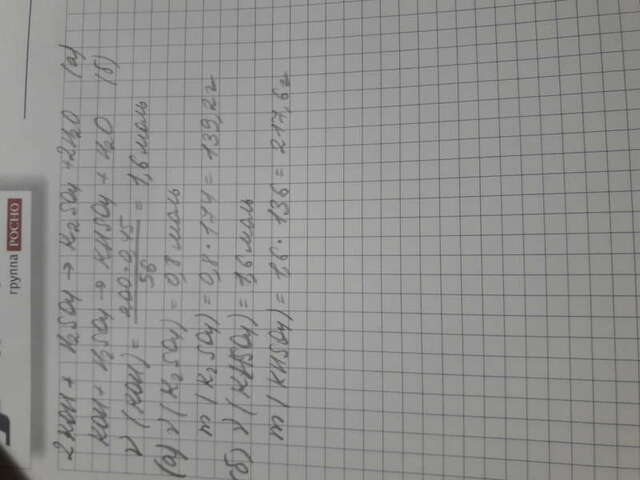 группа РОСНО
2KOH + H2SO4 → K2SO4 + 2H2O (а)
KOH + H2SO4 → KHSO4 + H2O (б)
ν(KOH) = 200·0,45 / 56 = 1,6 моль
(а) ν(K2SO4) = 0,8 моль
m(K2SO4) = 0,8·174 = 139,2г
(б) ν(KHSO4) = 1,6 моль
m(KHSO4) = 1,6·136 = 217,6г